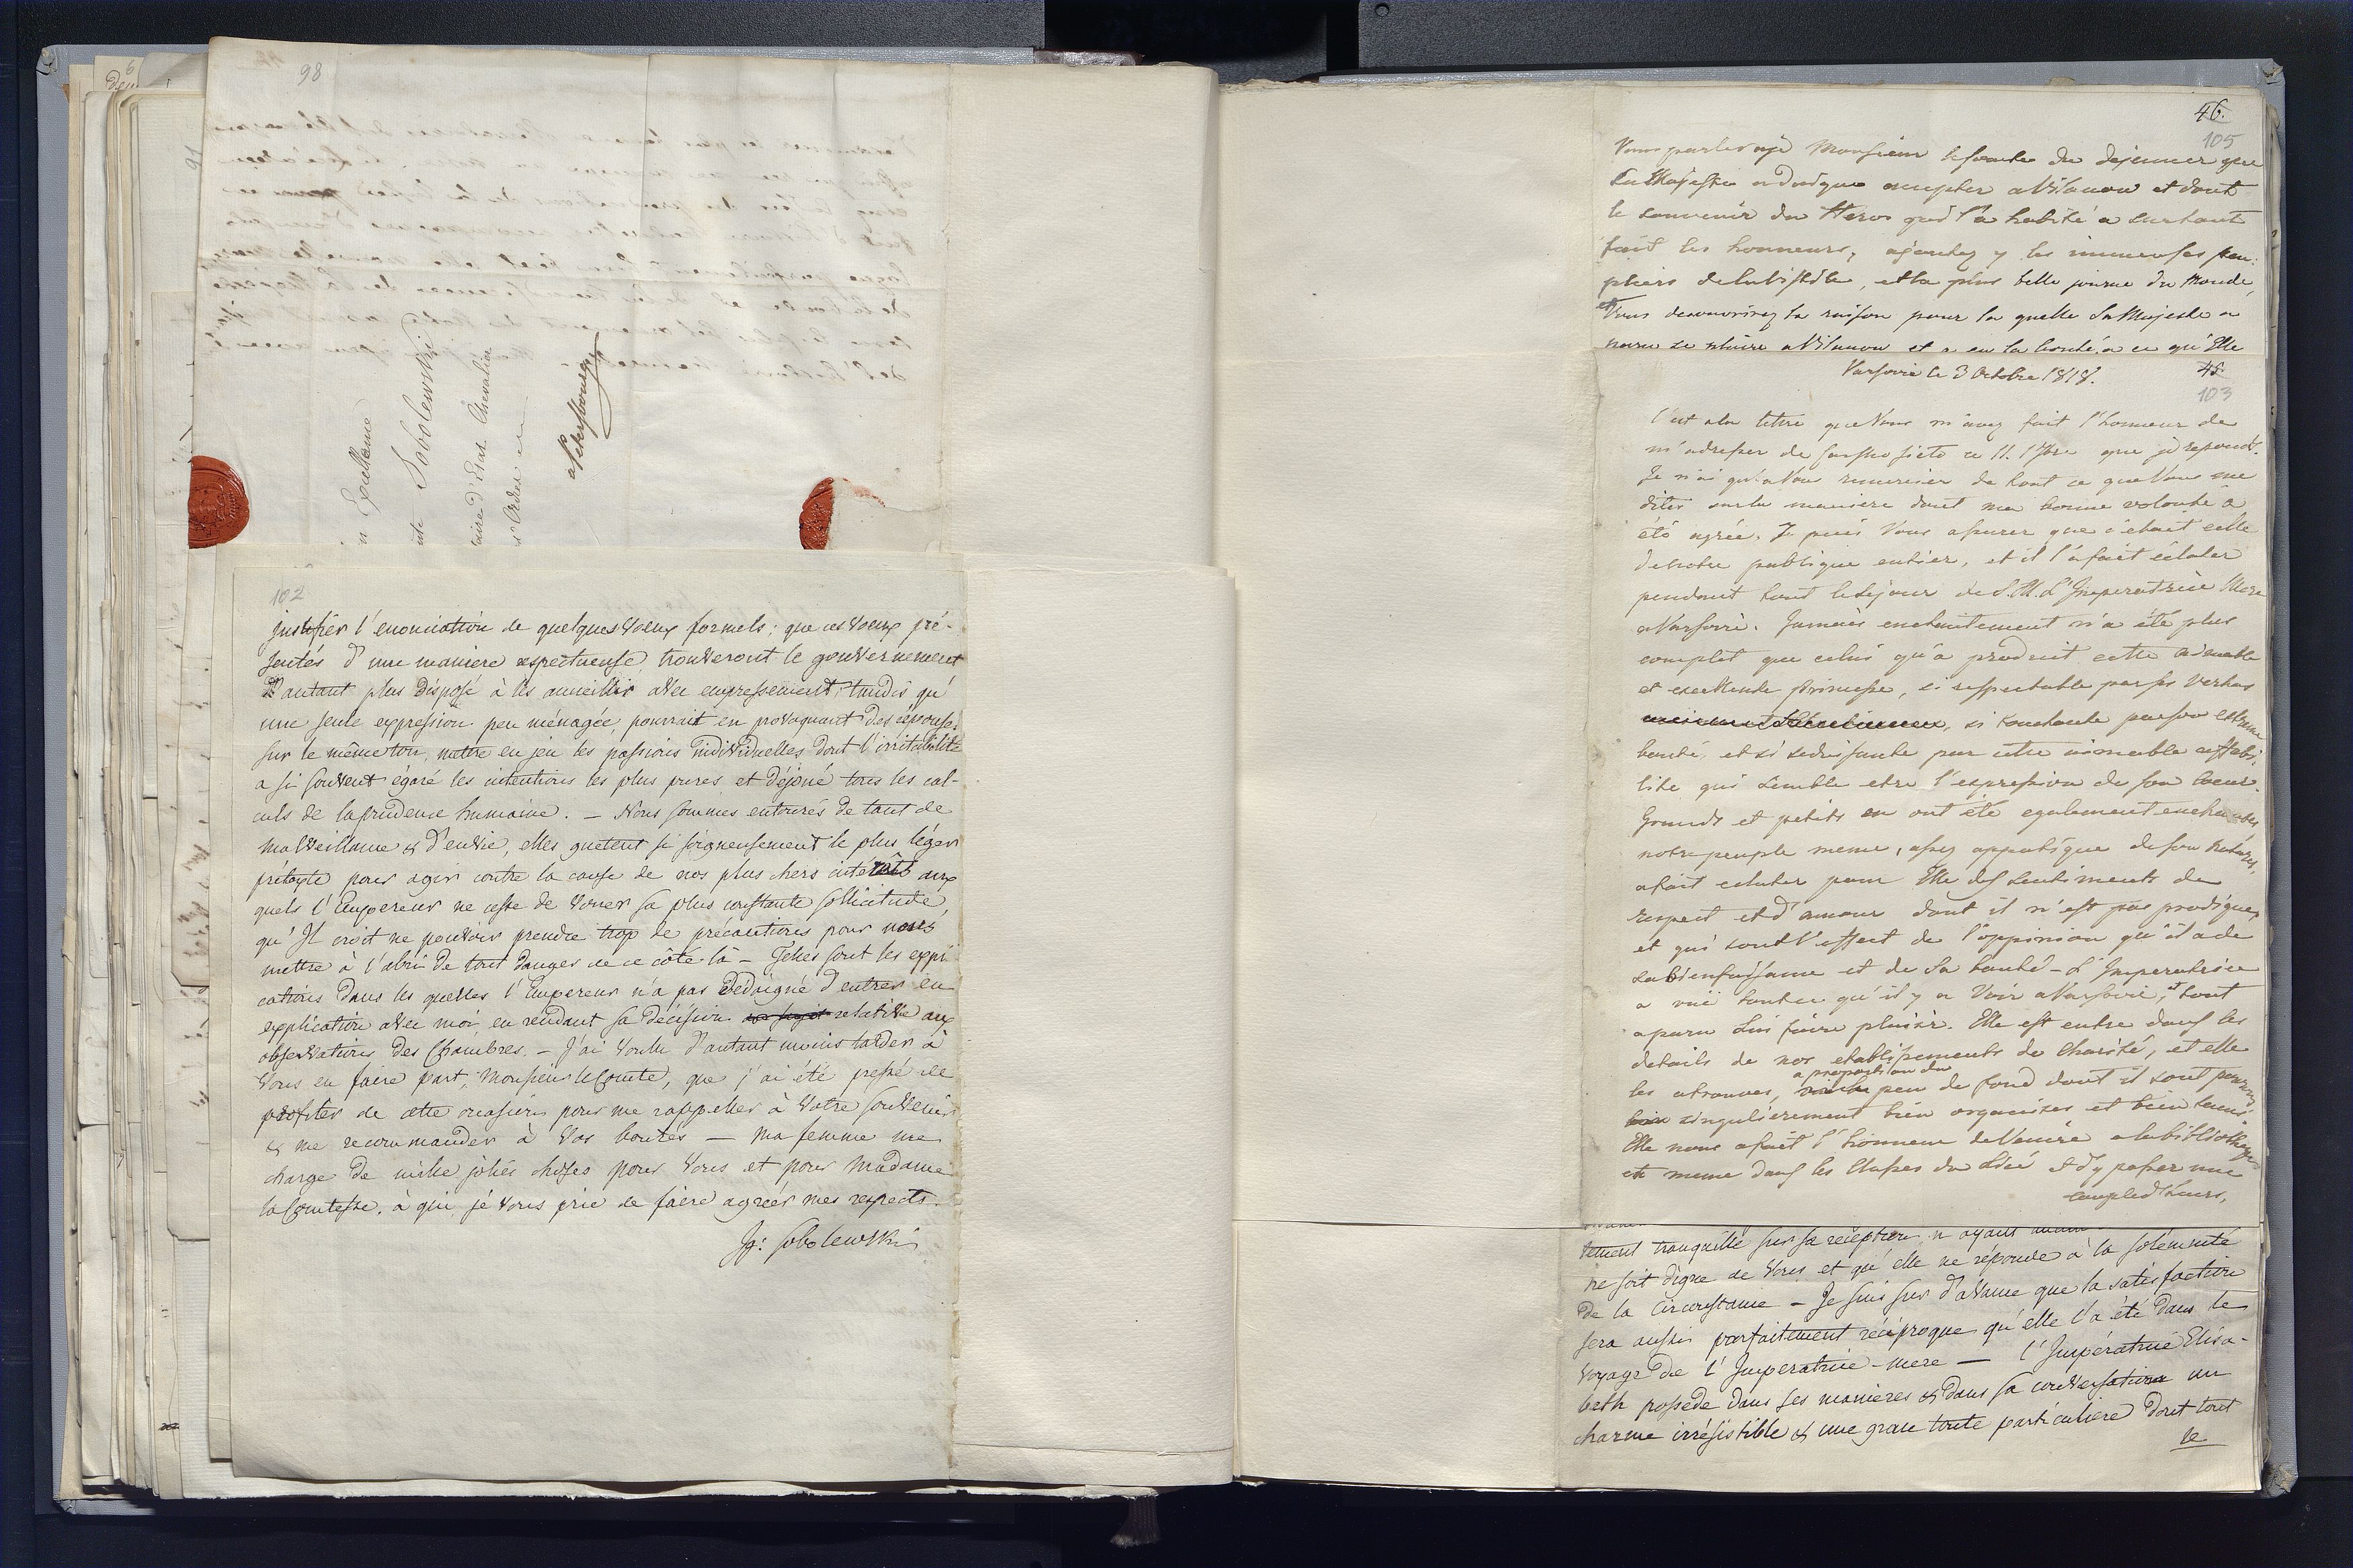 98
Son Excellence
Sobolewski
d'Etat Chevalier
Ordres
a Petersbourg
102
justifier l'enonciation de quelques voeux formels; que ces voeux pré-
sentés d'une maniere respectueuse trouveront le gouvernement
d'autant plus disposé à les accueillir avec empressement, tandis qu'
une seule expression peu ménagée, pourrait en provoquant des réponses
sur le même ton, mettre en jeu les passions individuelles dont l'irritabilité
a si souvent égaré les intentions les plus pures et déjoué tous les cal-
culs de la prudence humaine. — Nous sommes entourés de tant de
malveillance & d'envie, elles guetent si soigneusement le plus léger
prétexte pour agir contre la cause de nos plus chers intérêts aux
quels l'Empereur ne cesse de vouer sa plus constante sollicitude
qu'Il croit ne pouvoir prendre trop de précautions pour nous
mettre à l'abri de tout danger de ce côté là — Telles sont les expli
cations dans les quelles l'Empereur n'a pas dédaigné d'entrer en
explication avec moi, en rendant sa décision relative aux
observations des Chambres. — J'ai voulu d'autant moins tarder à
Vous en faire part, Monsieur le Comte, que j'ai été pressé de
profiter de cette occasion pour me rappeller à Votre souvenir
& me recommander à Vos bontés — Ma femme me
charge de mille jolies choses pour Vous et pour Madame
la Comtesse, à qui je Vous prie de faire agréer mes respects.
Ig: Sobolewski
46.
105
Vous parlerai-je Monsieur le Comte du dejeuner que
Sa Majesté a daigné accepter a Vilanow et dont
le souvenir du Heros qui l'a habité a surtout
fait les honneurs, ajoutez y les immenses peu-
pliers de la Vistule, et la plus belle journe du Monde,
et Vous decouvrirez la raison pour la quelle Sa Majesté a
paru se plaire a Vilanow et a eu la bonté a ce qu'Elle
Varsovie le 3 Octobre 1818.
45.
103
C'est a la lettre que Vous m'avez fait l'honneur de
m'adresser de ce 11. 7bre que je reponds.
Je n'ai qu'a Vous remercier de tout ce que Vous me
dites sur la maniere dont ma bonne volonté a
été agrée. Je puis Vous assurer que c'etait celle
de notre publique entier, et il l'a fait éclater
pendant tout le sejour de S.M. L'Imperatrice Mere
a Varsovie. Jamais enchantement n'a été plus
complet que celui qu'a produit cette adorable
et excellente Princesse, si respectable par ses Vertus
si touchante par son extreme
bonté, et si seduisante par cette aimable affabi-
lité qui semble etre l'expression de son coeur.
Grands et petits en ont été egalement enchantés
notre peuple meme, assez appatique de sa Nature,
a fait eclater pour Elle des sentiments de
respect et d'amour dont il n'est pas prodigue
et qui sont l'effet de l'oppinion qu'il a de
sa bienfaisance et de sa bonté — L'Imperatrice
a vue toutce qu'il y a Voir a Varsovie, et tout
a paru Lui faire plaisir. Elle est entre dans les
details de nos etablissements de Charité, et elle
a proportion du
les a trouves, peu de fond dont il sont pourvus
singulierement bien organisés et bien tenus
Elle nous a fait l'honneur de Venire a la bibliotheque
et meme dans les Classes du Licé et d'y passer une
couple d'heures,
tement tranquille sur sa reception n'ayant aucun
ne soit digne de Vous et qu'elle ne réponde à la solemnité
de la circonstance — Je suis sur d'avance que la satisfaction
sera aussi parfaitement réciproque qu'elle l'a été dans le
voyage de l'Imperatrice-mere — l'Impératrice Elisa-
beth possede dans ses manieres & dans sa conversation un
charme irrésistible & une grace toute particuliere dont tout
le